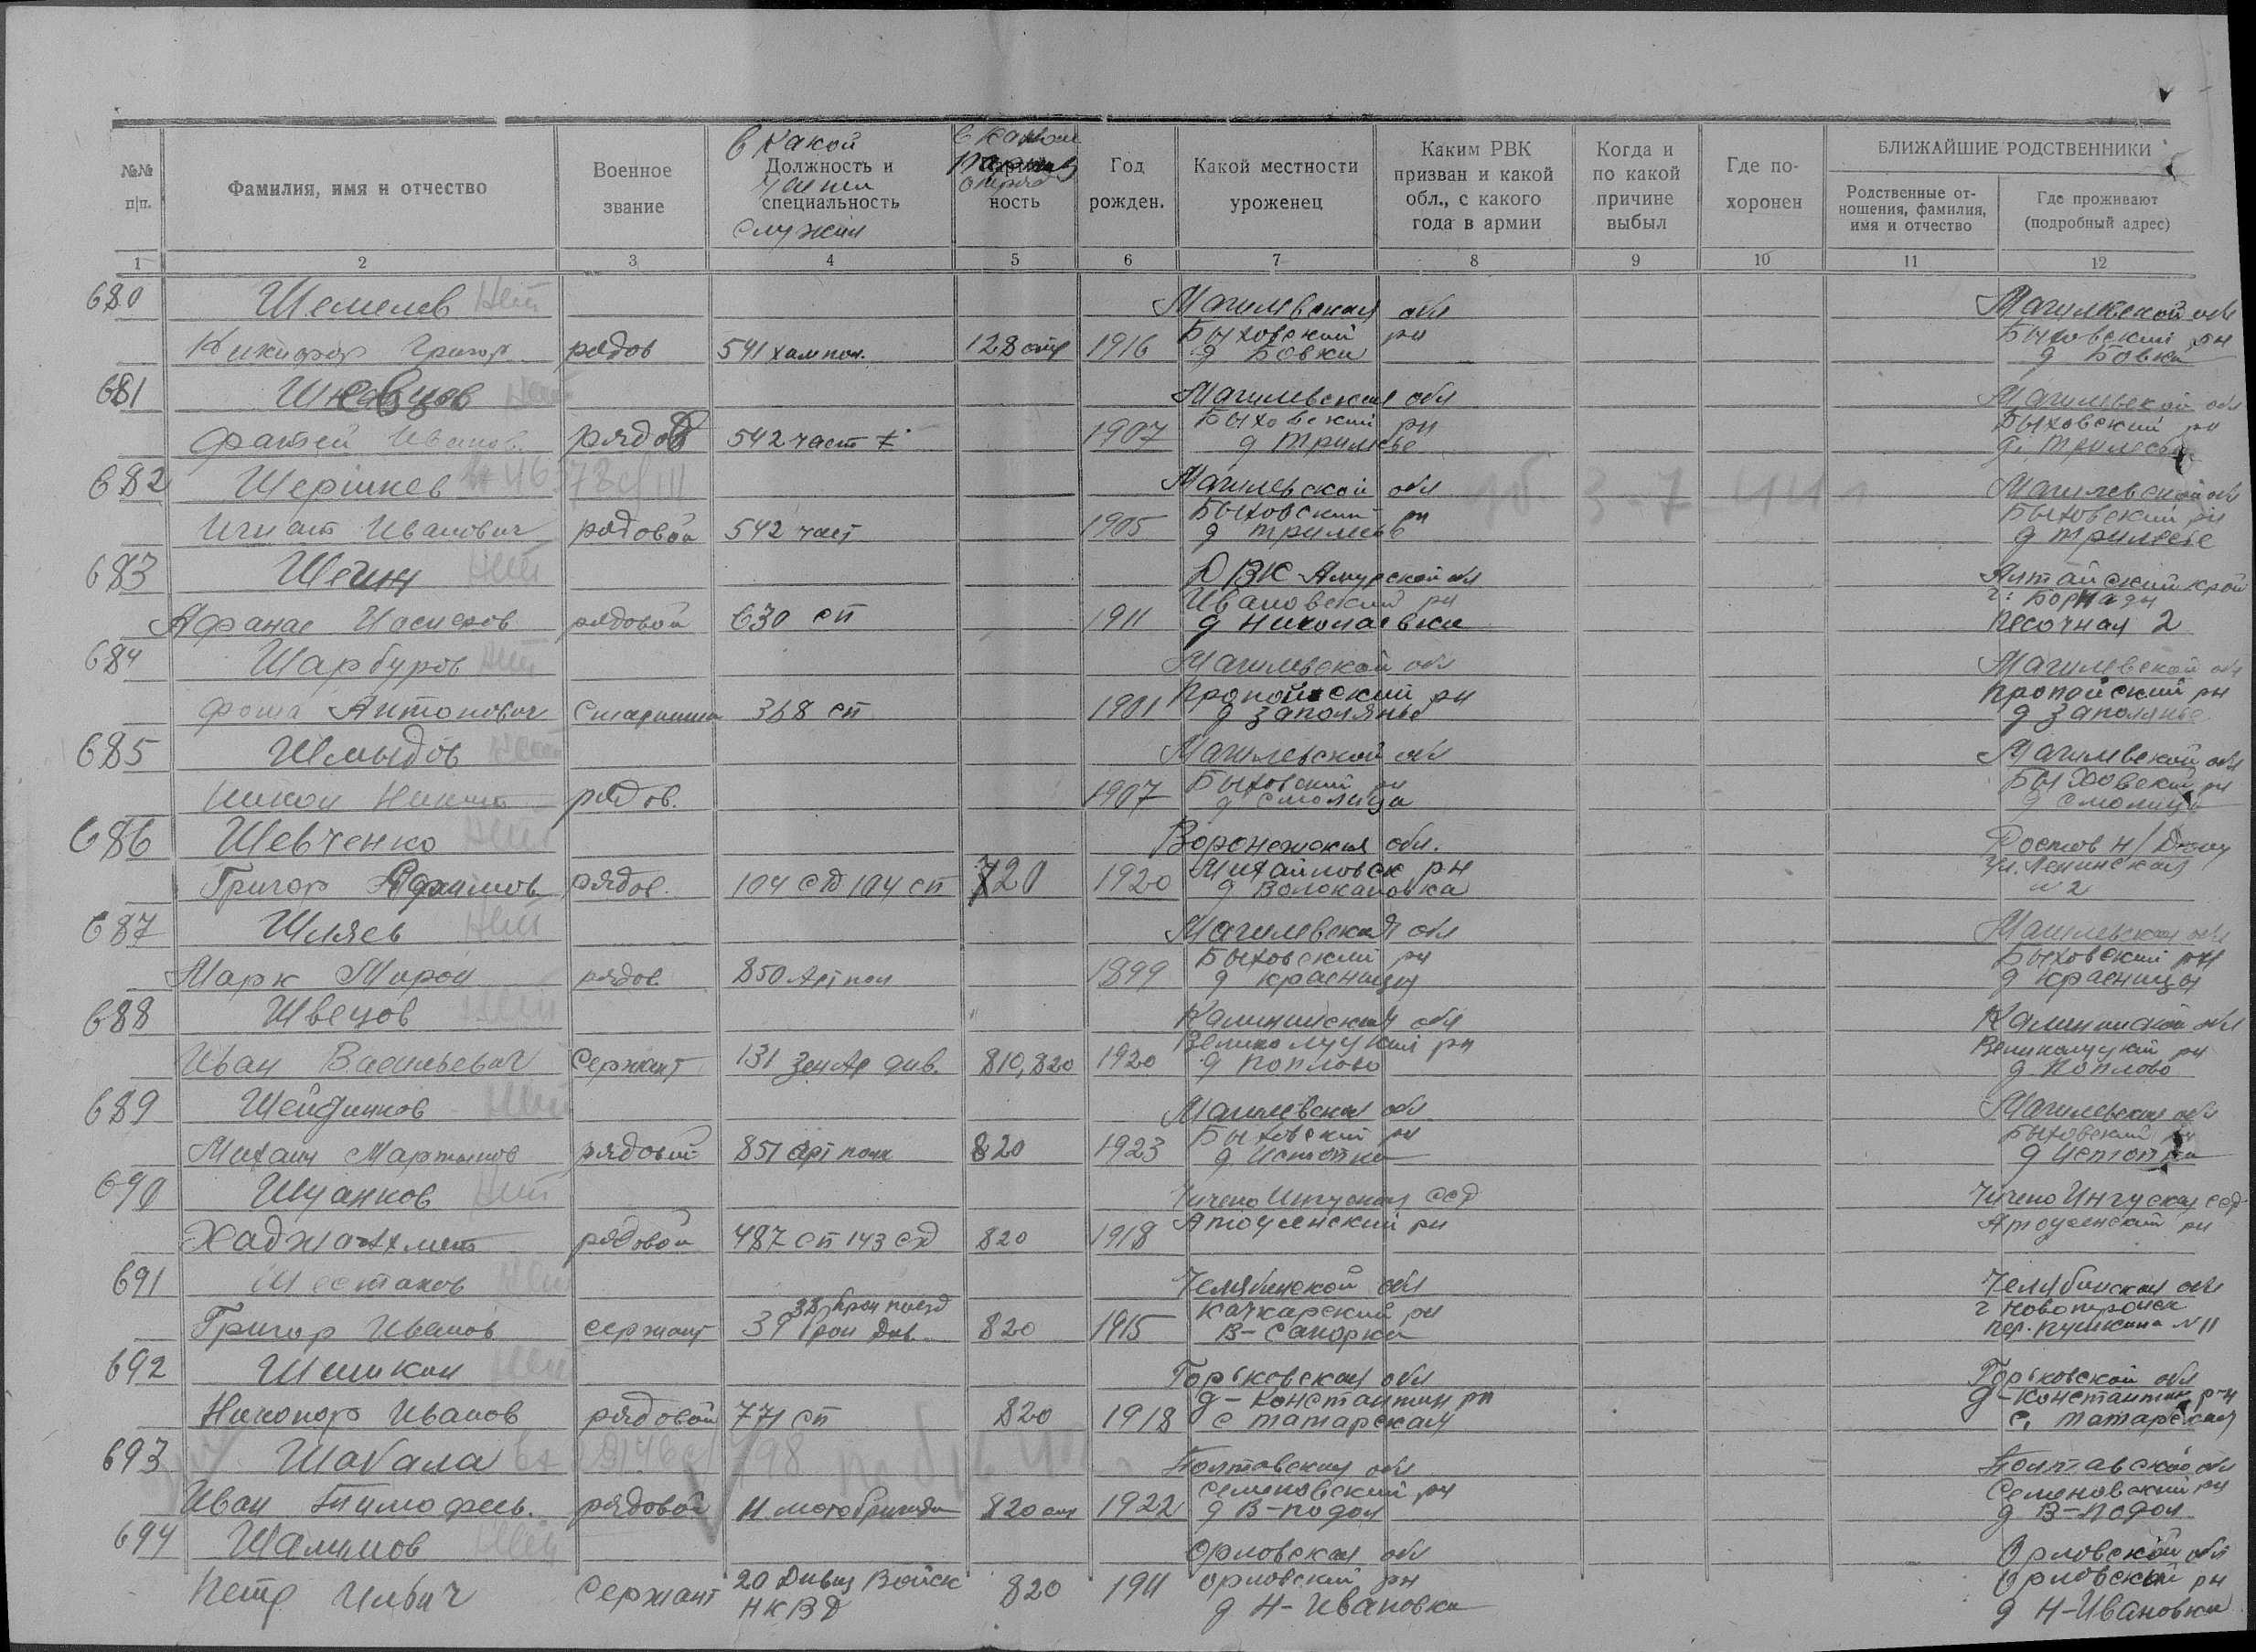 в какой части служил
в каком партиз отряд
№№ п|п.
Фамилия, имя и отчество
Военное звание
Должность и специальность
ность
Год рожден.
Какой местности уроженец
Каким РВК призван и какой обл., с какого года в армии
Когда и по какой причине выбыл
Где похоронен
БЛИЖАЙШИЕ РОДСТВЕННИКИ
Родственные отношения, фамилия, имя и отчество
Где проживают (подробный адрес)
1 2 3 4 5 6 7 8 9 10 11 12
680 Шемелев Нет Магилевская обл Магилевской обл
Никифор Григор рядов 541 128 отр 1916 Быховский рн д Бовки Быховский рн д Бовки
681 Шкавцов Нет Магилевская обл Магилевской обл
Фатей Иванов. рядов 542 част 1907 Быховский рн д Трилесье Быховский рн д. Трилесье
682 Шершнев Магилевской обл Магилевской обл
Игнат Иванович рядовой 542 част 1905 Быховский рн д Трилесье Быховский рн д Трилесье
683 Шегин Нет ДВК Амурской обл Алтайский край
Афанас рядовой 630 сп 1911 Ивановский рн д Николаевка Песочная 2
684 Шарбуров Нет Магилевской обл Магилевской обл
Фома Антонович Старшина 368 сп 1901 Пропойский рн д Заполянье Пропойский рн д Заполянье
685 Шмыдов Магилевской обл Магилевской обл
Никон Никит рядов. 1907 Быховский рн д Смолица Быховский рн д Смолица
686 Шевченко Нет Воронежская обл. Ростов Н/Дону
Григор рядов. 104 сд 104 сп 720 1920 Михайловск рн д Волокановка Ул. Ленинская № 2
687 Шляев Нет Магилевская обл Магилевская обл
Марк Мирон рядов. 850 Арт пол 1899 Быховский рн д Красницы Быховский рн д Красницы
688 Швецов Нет Калининская обл Калининской обл
Иван Васильевич Сержант 131 Зен Ар див. 810,820 1920 Великолуцкий рн д Поплово Великолуцкий рн д Поплово
689 Шейдинков Нет Магилевская обл Магилевская обл
Михаил Мартынов рядовой 851 Арт полк 820 1923 Быховский рн д Истопки Быховский рн д Истопки
690 Шуанков Нет Чичено Ингуская ССР Чичено Ингуская ССР
Хаджа-Ахмет рядовой 487 сп 143 сд 820 1918 рн рн
691 Шестаков Нет Челябинской обл Челябинская обл
Григор Иванов сержант 39 Брон Див. 38 Брон поезд 820 1915 Качкарский рн В-Санорка г Новотроиск пер. Пушкина № 11
692 Шишкин Нет Горьковская обл Горьковской обл
Никонор Иванов рядовой 771 сп 820 1918 Д-Константин рн с Татарская Д-Константин рн с. Татарская
693 Шабала Полтавская обл Полтавской обл
Иван Тимофеев. рядовой 11 мотобригада 820 отр 1922 Семеновский рн д В-Подол Семеновский рн д В-Подол
694 Шалимов Нет Орловская обл Орловской обл
Петр Ильич Сержант 20 Дивиз Войск НКВД 820 1911 Орловский рн д Н-Ивановка Орловский рн д Н-Ивановка